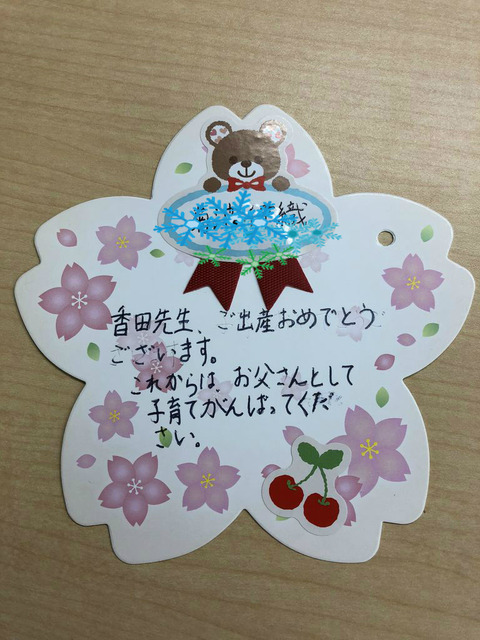 織
香田先生、ご出産おめでとう
ございます。
これからは、お父さんとして
子育てがんばってくだ
さい。